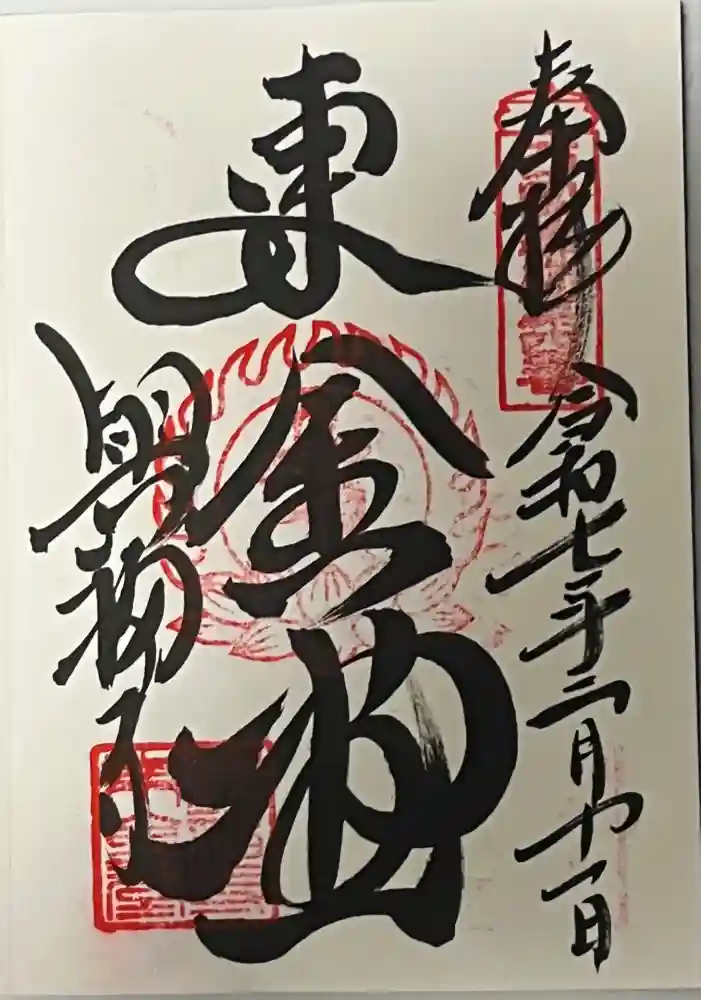 奉拝
令和七年三月十一日
東金堂
興福寺